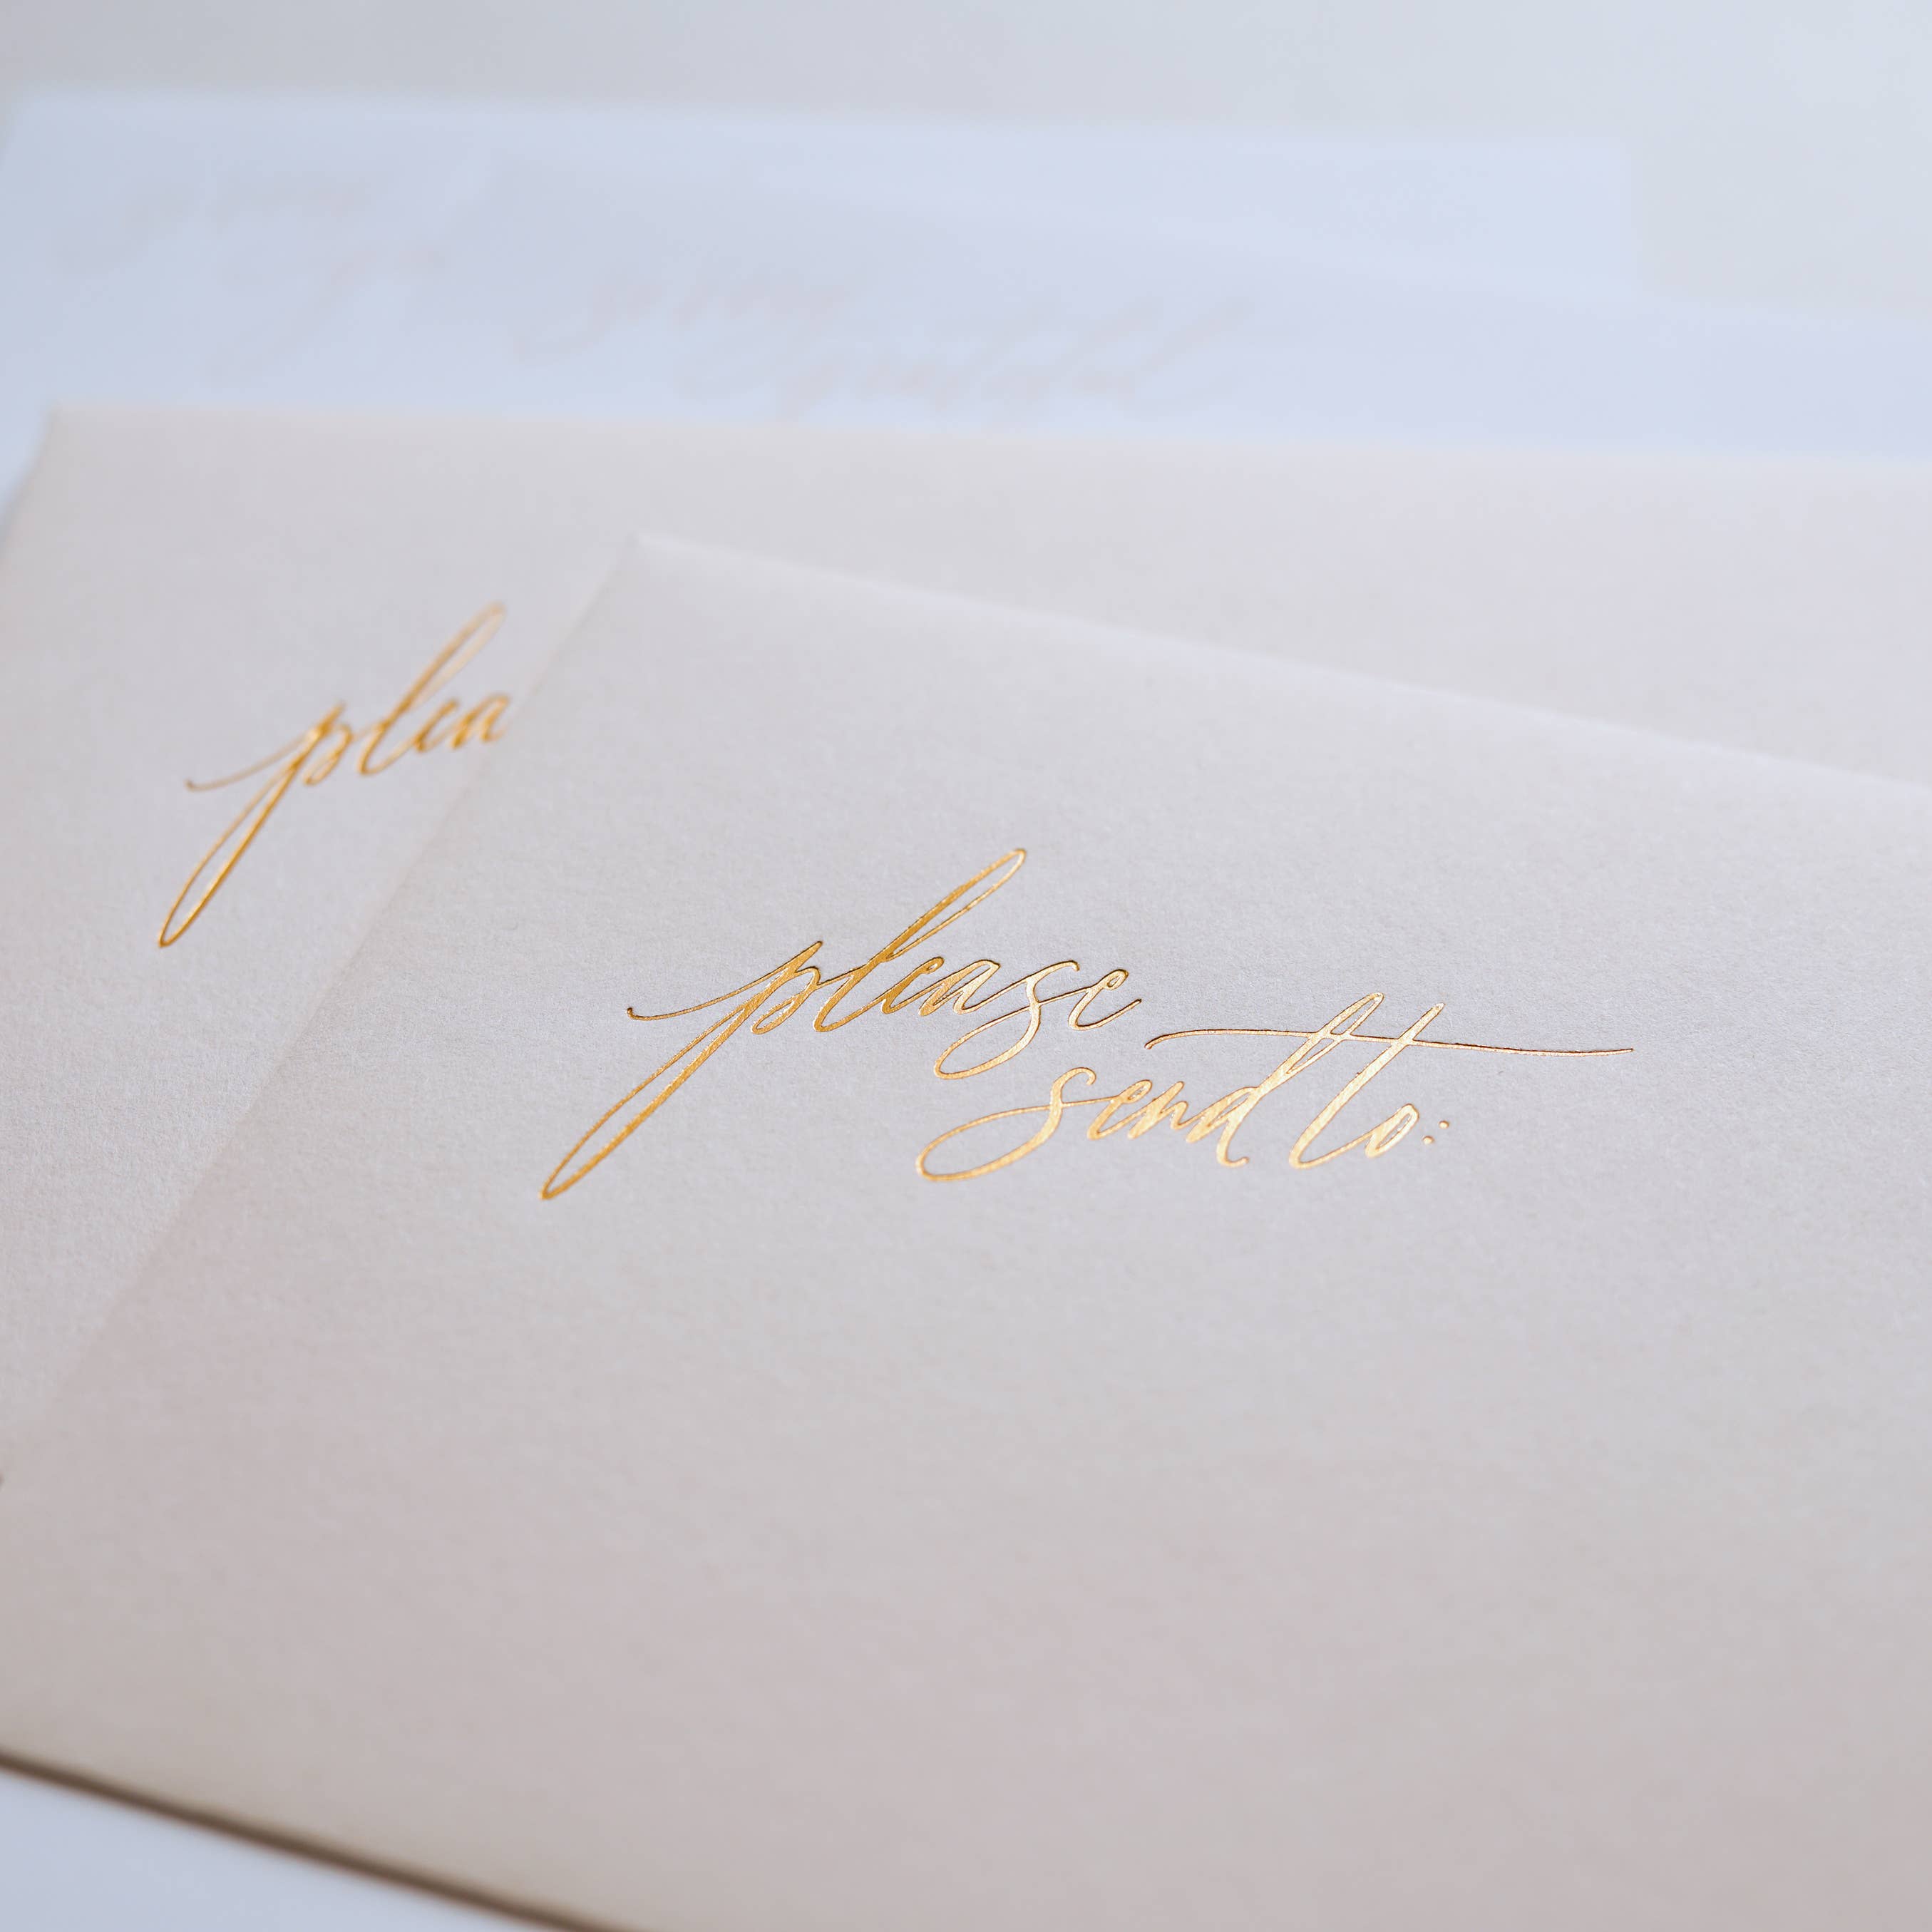 plea
please
send to: